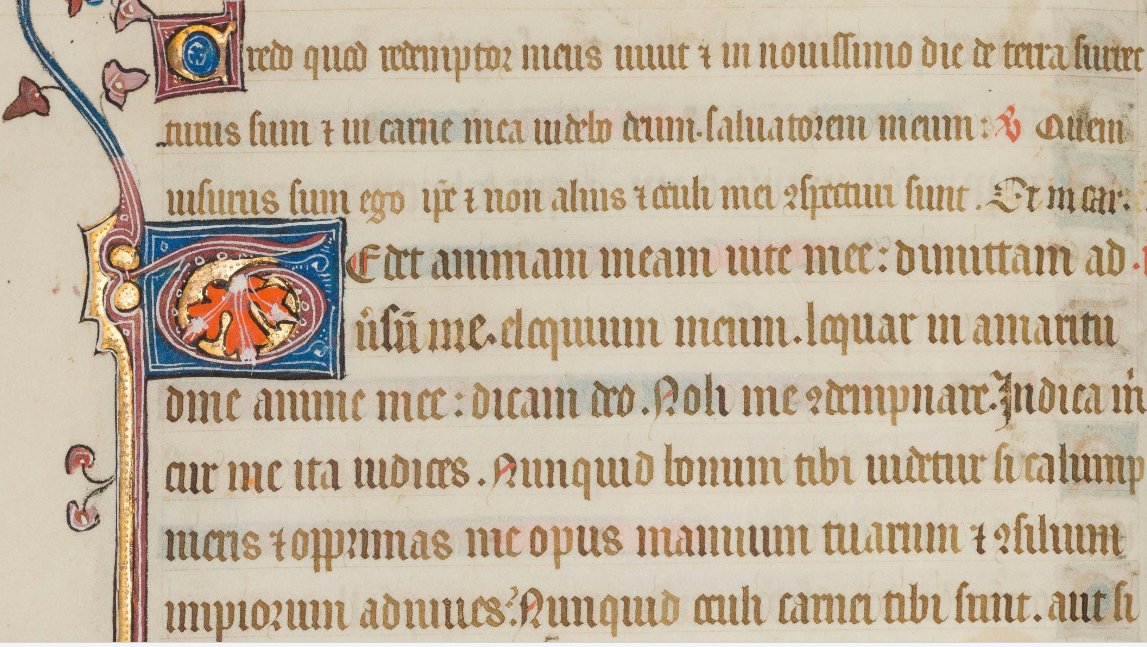 Credo quod redemptor meus uiuit ⁊ in nouissimo die de terra surrec
turus sum ⁊ in carne mea uidebo deum saluatorem meum : V Quem
uisurus sum ego ip̄e ⁊ non alius ⁊ oculi mei ꝯspecturi sunt . Et in car.
Tedet animam meam uite mee : dimittam ad
u̓sū me . eloquium meum . loquar in amaritu
dine anime mee : dicam deo . Noli me ꝯdempnare . Indica m̓
cur me ita iudices . Nunquid bonum tibi uidetur si calump
nieris ⁊ opprimas me opus manuum tuarum ⁊ ꝯsilium
impiorum adiuues ? Nunquid oculi carnei tibi sunt . aut si